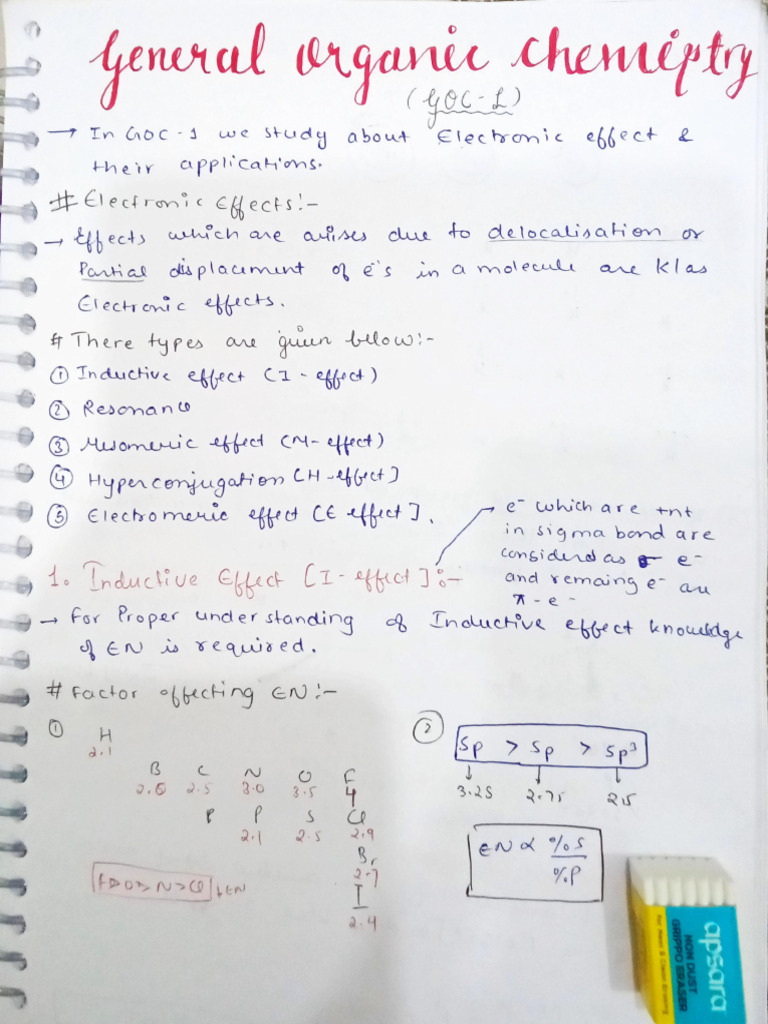 General organic chemistry
(GOC-1)
→ In GOC-1 we study about Electronic effect &
their applications.
# Electronic Effects:-
→ Effects which are arises due to delocalisation or
Partial displacement of e⁻s in a molecule are K/as
Electronic effects.
# There types are given below:-
① Inductive effect (I-effect)
② Resonance
③ Mesomeric effect (M-effect)
④ Hyperconjugation [H-effect]
⑤ Electromeric effect [E effect].
e⁻ which are +nt
in sigma bond are
considerd as σ e⁻
and remaing e⁻ are
π-e⁻
1. Inductive Effect [I-effect]:-
→ For Proper understanding of Inductive effect knowledge
of EN is required.
# Factor offecting EN:-
①
H
2.1
B C N O F
2.0 2.5 3.0 3.5 4
P P S Cl
2.1 2.5 2.9
Br
2.7
I
2.4
F>O>N>Cl EN
②
Sp > Sp > Sp³
3.25 2.75 2.5
EN ∝ %S
%P
apsara
NON DUST
GRIPPO ERASER